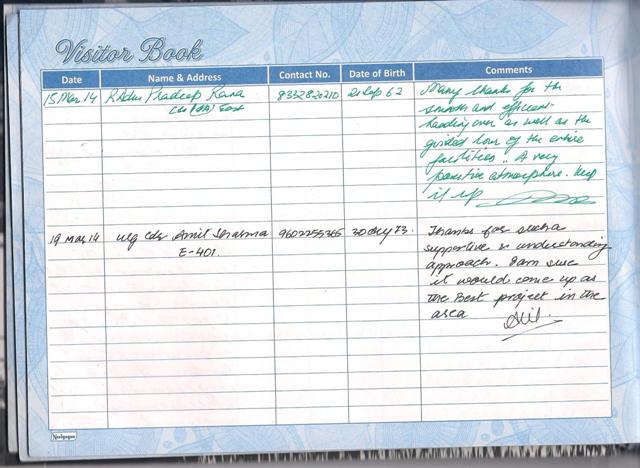 Visitor Book
Date Name & Address Contact No. Date of Birth Comments
15 Mar 14 RAdm Pradeep Rana 8332820210 21 Sep 62 Many thanks for the
East smooth and efficient
handing over as well as the
guided tour of the entire
facilities.. A very
positive atmosphere. Keep
it up
19 Mar 14 Wg Cdr Amit Sharma 9602255365 30 73. Thanks for such a
E-401 supportive & understanding
approach. I am sure
it would come up as
the Best project in the
area
Neelgagan